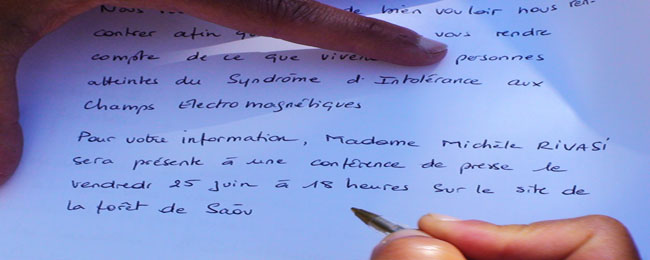 Nous de bien vouloir nous ren-
contrer afin vous rendre
compte de ce que vivent personnes
atteintes du Syndrôme d'Intolérance aux
Champs Electromagnétiques
Pour votre information, Madame Michèle RIVASI
sera présente à une conférence de presse le
vendredi 25 juin à 18 heures sur le site de
la forêt de Saôu